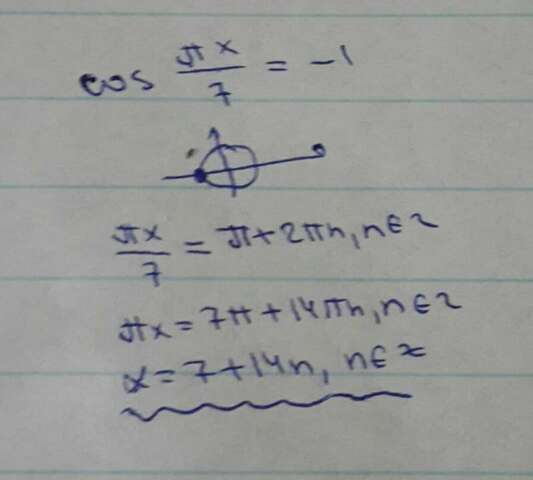 cos πx/7 = -1
πx/7 = π+2πn, n∈Z
πx = 7π+14πn, n∈Z
x = 7+14n, n∈Z